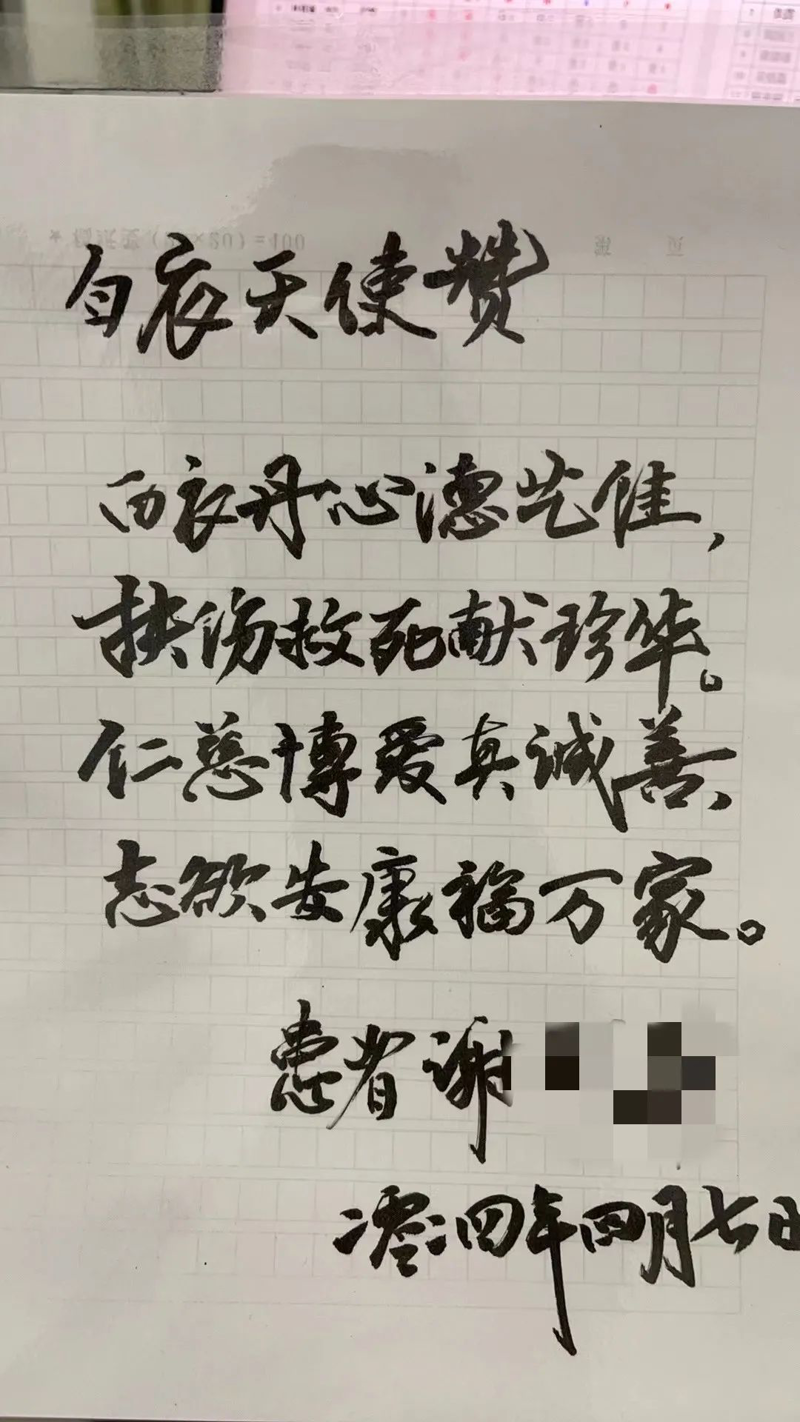 白衣天使赞
白衣丹心德艺佳，
扶伤救死献珍华。
仁慈博爱真诚善，
志欲安康福万家。
患者谢
二零二四年四月七日